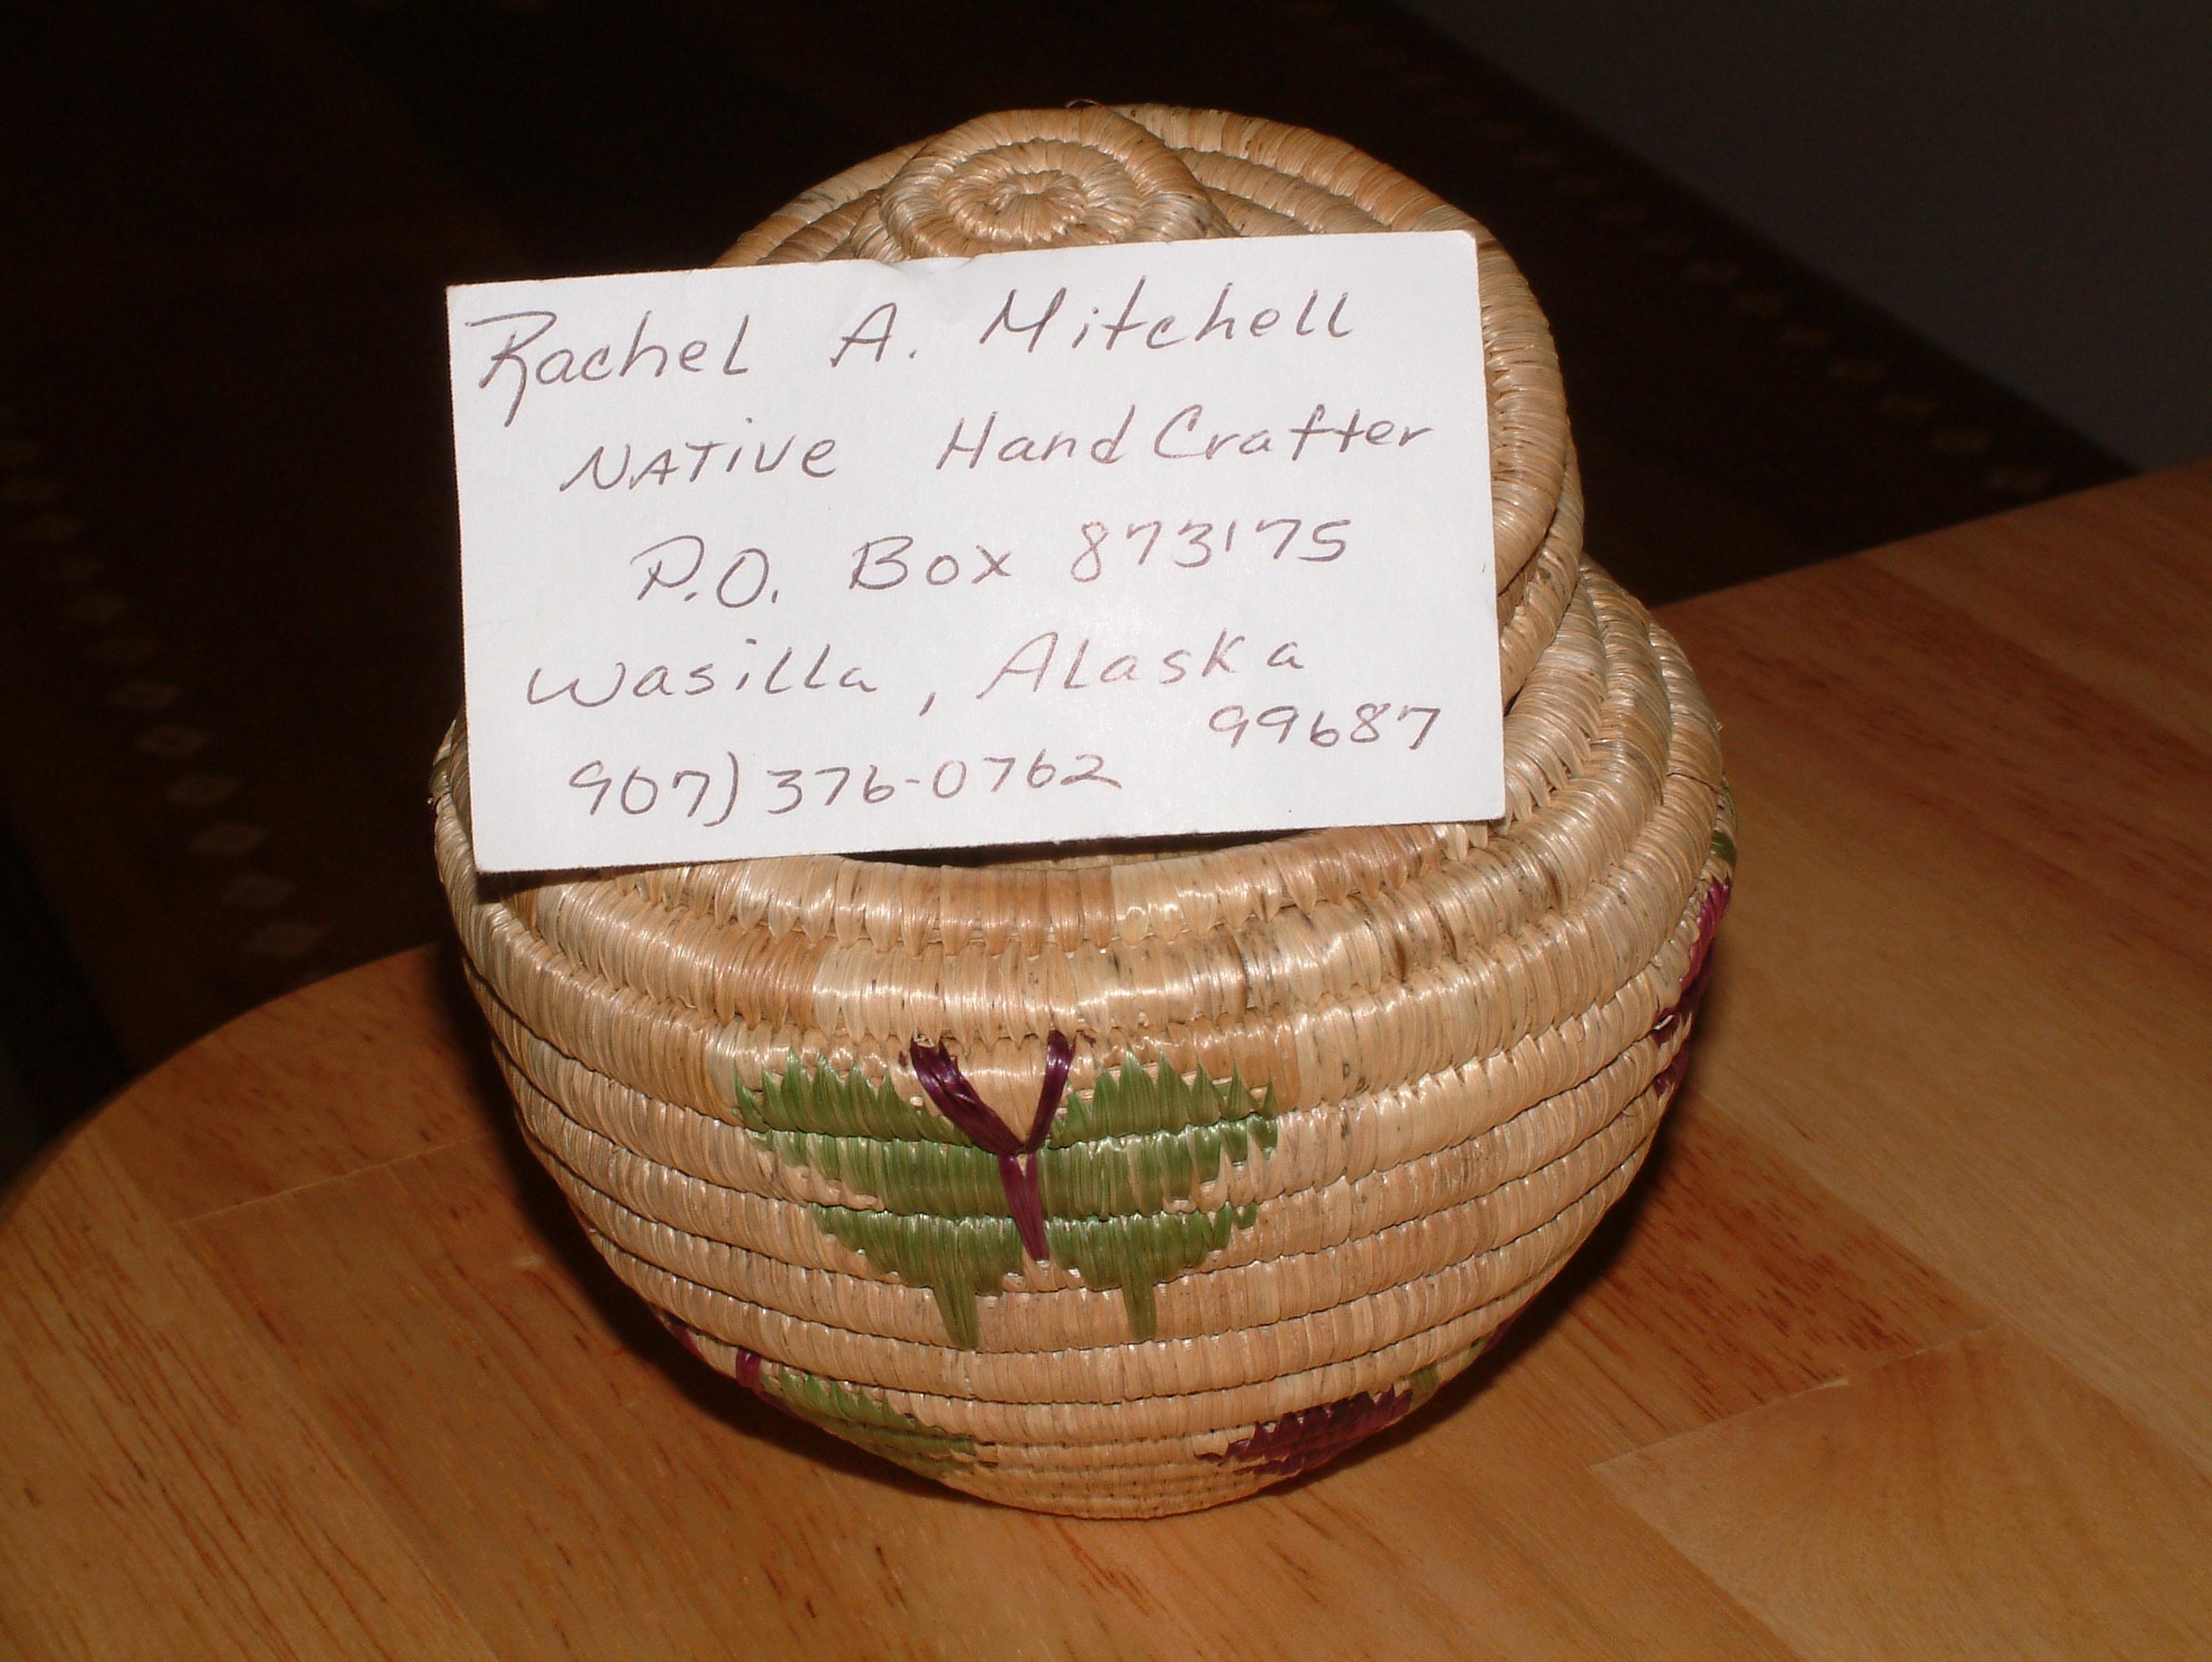 Rachel A. Mitchell
NATIVE HandCrafter
P.O. Box 873175
Wasilla, Alaska
99687
907) 376-0762